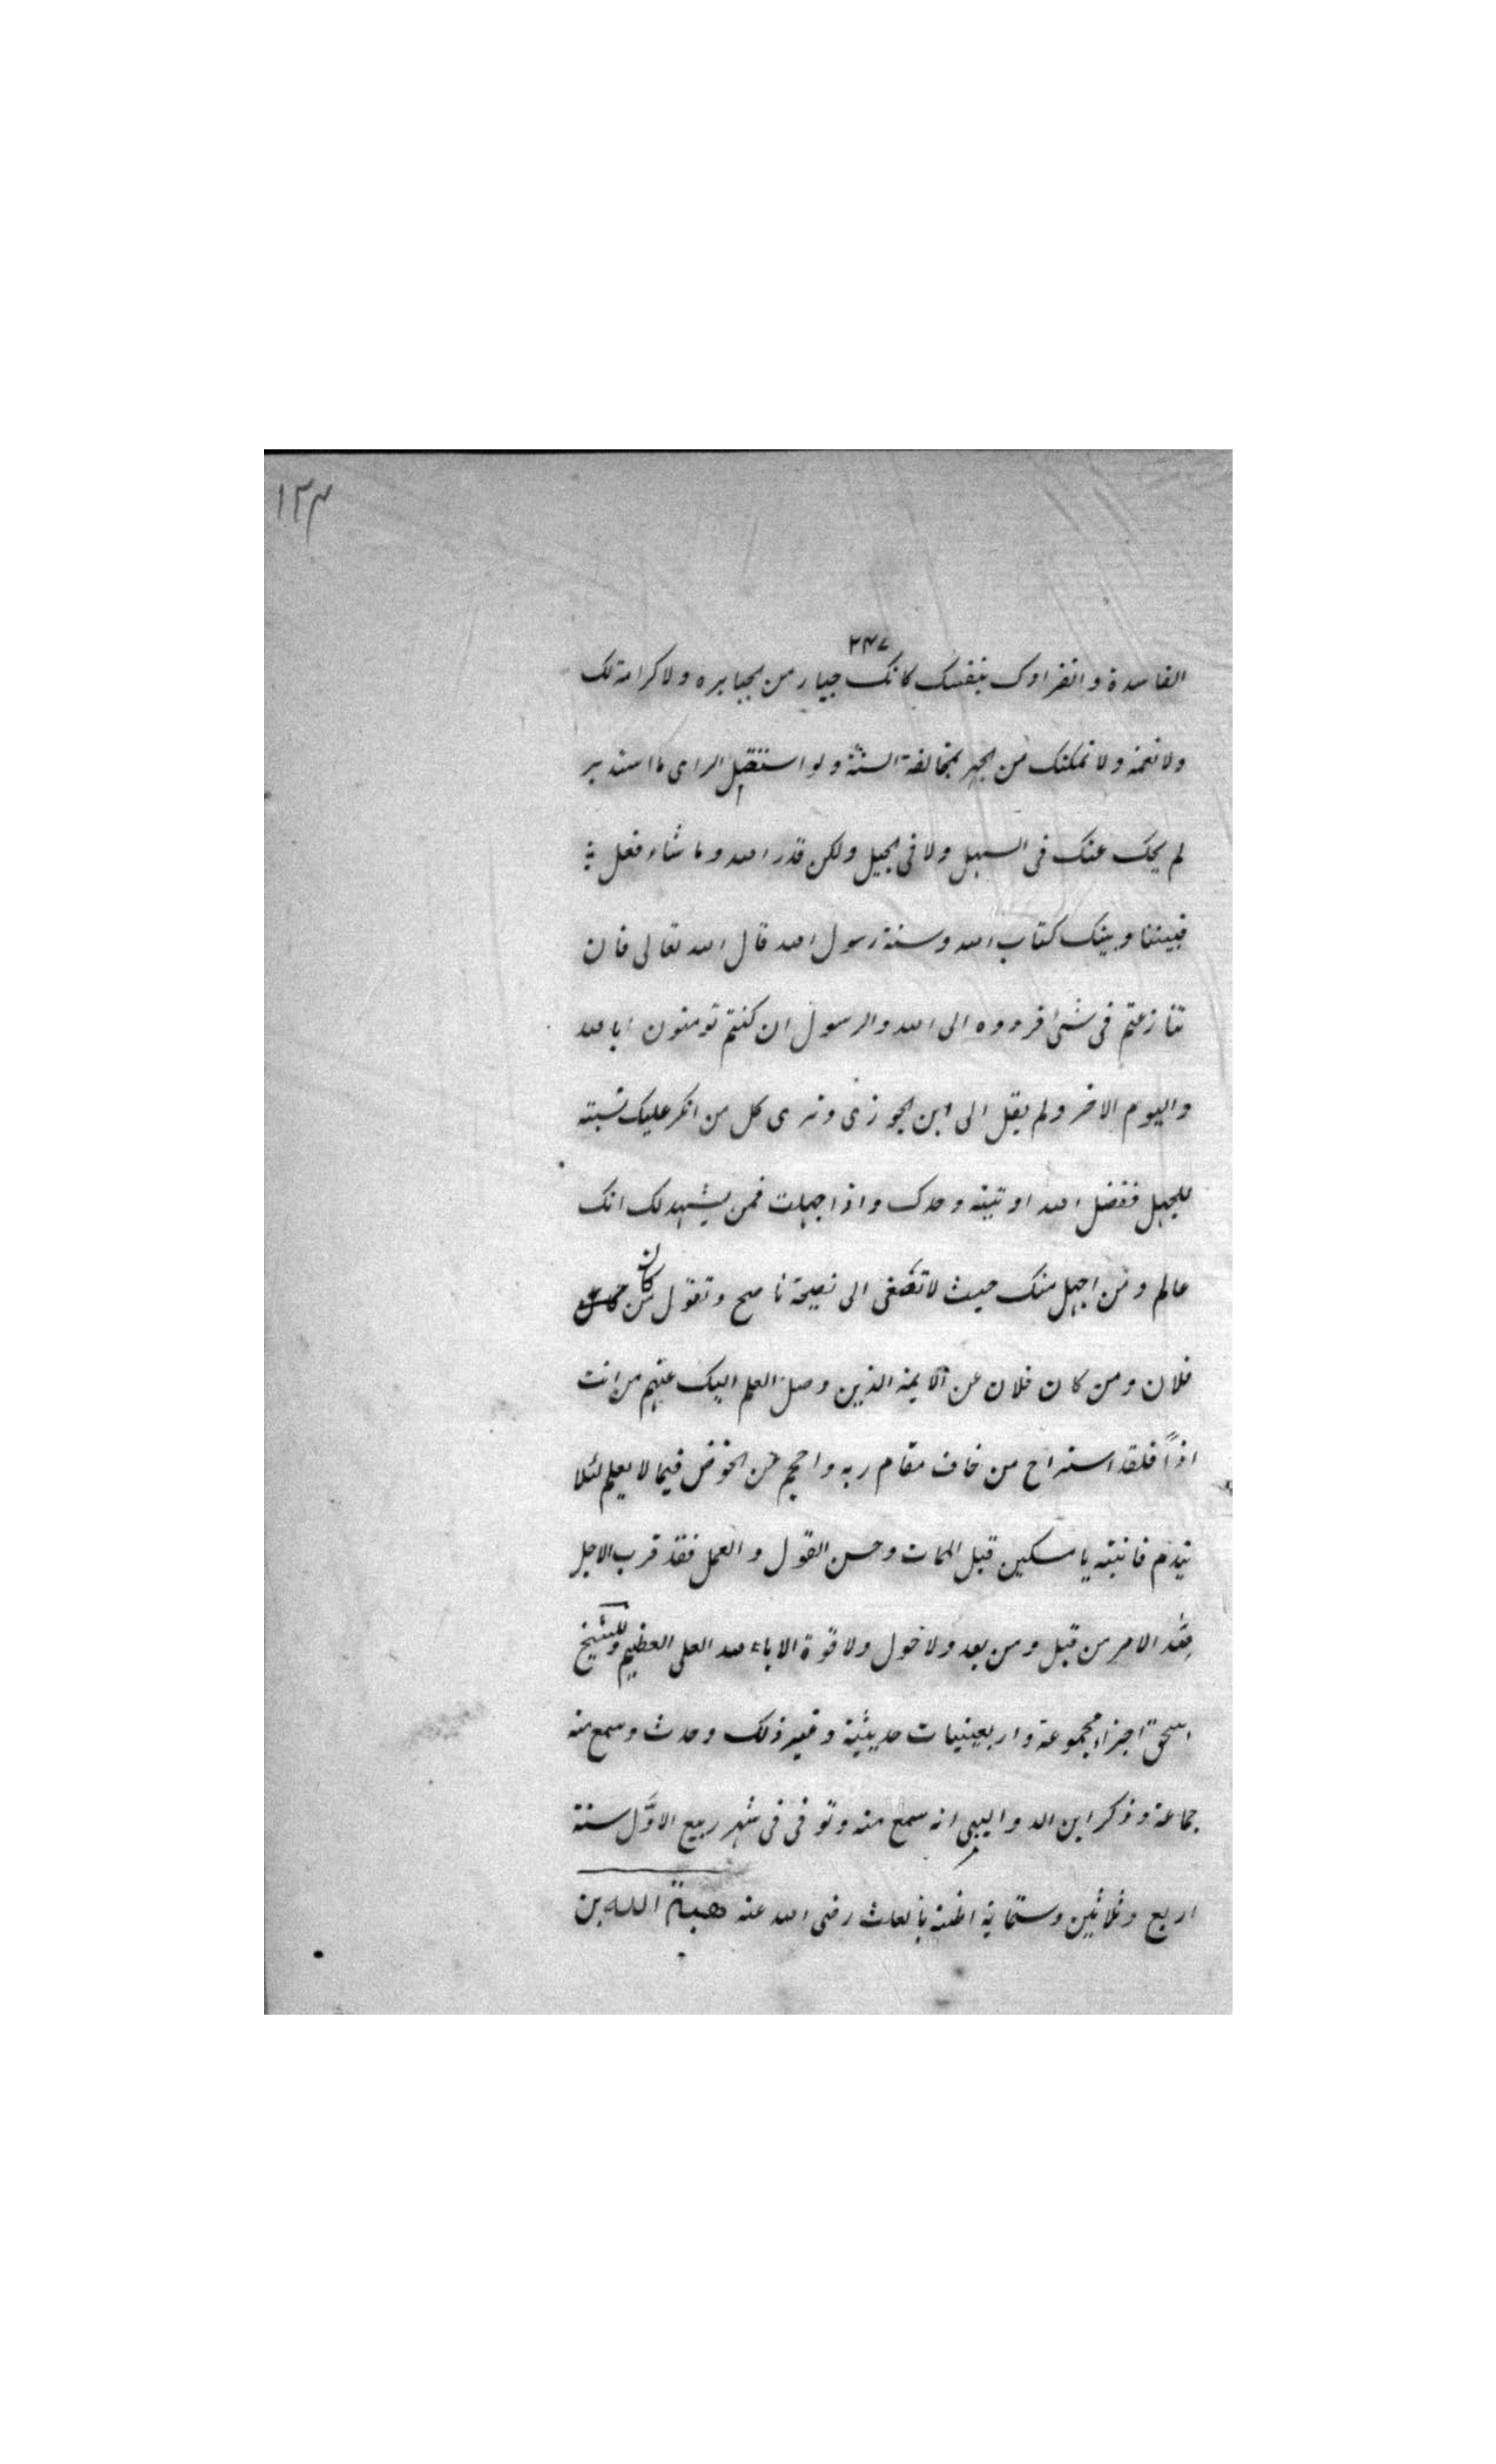 ١٣٤
٢٤٧
الفاسدة وانفرادك بنفسك كانك جبار من الجبابره ولا كرامة لك
ولا نعمة ولا نمكنك من الجهر بمخالفة السنة ولو استقبل الراى ما استدبر
لم يحك عنك فى السهل ولا فى الجبل ولكن قدر الله وما شاء فعل
فبيننا وبينك كتاب الله وسنة رسول الله قال الله تعالى فان
تنازعتم فى شئ فردوه الى الله والرسول ان كنتم تومنون بالله
واليوم الاخر ولم يقل الى ابن الجوزى وترى كل من انكر عليك نسبته
للجهل ففضل الله اوتيته وحدك واذا جهلت فمن يشهد لك انك
عالم ومن اجهل منك حيث لا تصغى الى نصيحة ناصح وتقول من كان
فلان ومن كان فلان عن الايمة الذين وصل العلم اليك عنهم من انت
اذاً فلقد استراح من خاف مقام ربه واحجم عن الخوض فيما لا يعلم لئلا
يندم فانتبه يا مسكين قبل الممات وحسن القول والعمل فقد قرب الاجل
فلله الامر من قبل ومن بعد ولا حول ولا قوة الا بالله العلى العظيم وللشيخ
اسحق اجزاء مجموعة واربعينيات حديثية وغير ذلك وحدث وسمع منه
جماعة وذكر ابن الدواليبى انه سمع منه وتوفى فى شهر ربيع الاوّل سنة
اربع وثلاثين وستماية اظنه بالعلث رضى الله عنه هبة الله بن